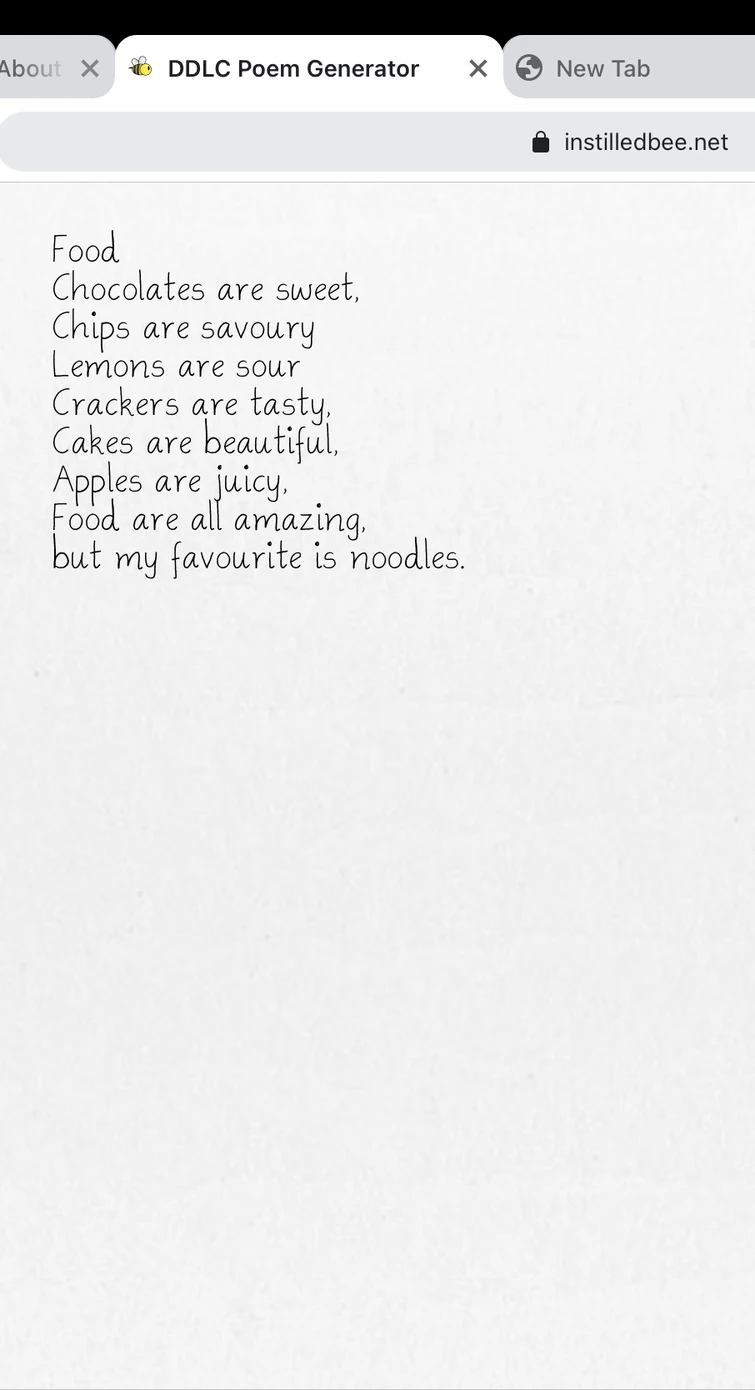 About
DDLC Poem Generator
New Tab
instilledbee.net
Food
Chocolates are sweet,
Chips are savoury
Lemons are sour
Crackers are tasty,
Cakes are beautiful,
Apples are juicy,
Food are all amazing,
but my favourite is noodles.